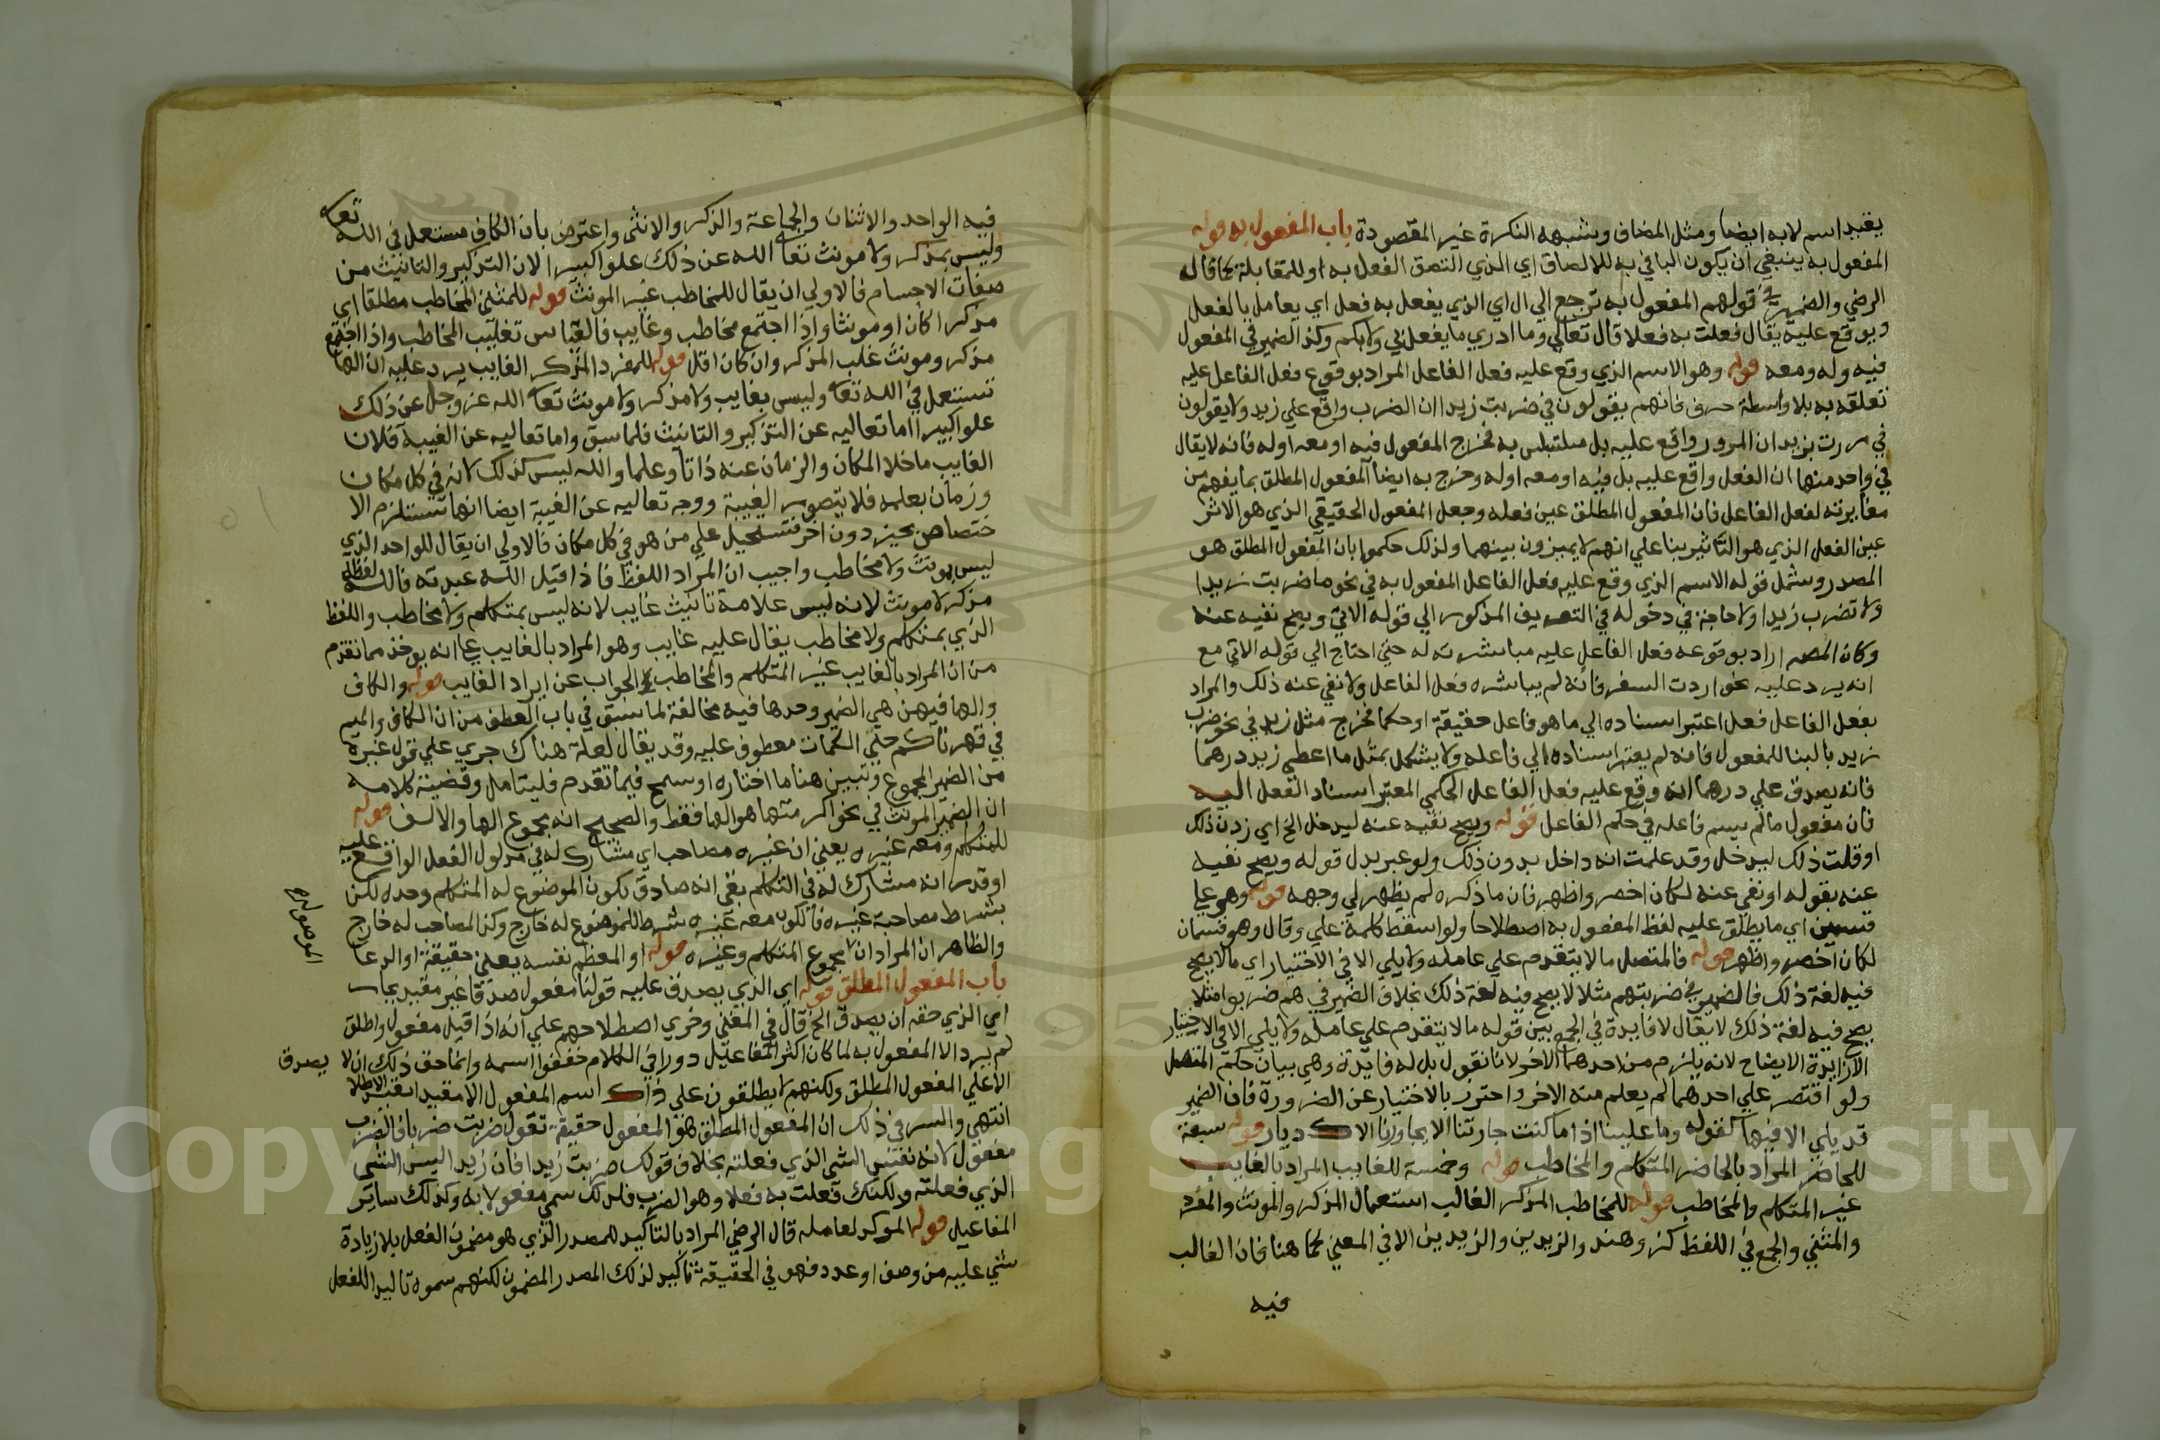 يقيد اسم لا به ايضا ومثل المضاف وشبهه النكرة غير المقصودة باب المفعول به قوله
المفعول به ينبغي ان يكون البا في به للالصاق اي الذي التصق الفعل به او للمقابلة كما قاله
الرضي والضمير في قولهم المفعول به ترجع الي ال اي الذي يفعل به فعل اي يعامل بالفعل
ويوقع عليه يقال فعلت به فعلا قال تعالي وما ادري ما يفعل بي ولا بكم وكذا الضمير في المفعول
فيه وله ومعه قوله وهو الاسم الذي وقع عليه فعل الفاعل المراد بوقوع فعل الفاعل عليه
تعلقه به بلا واسطة حرف فانهم يقولون في ضربت زيدا ان الضرب واقع علي زيد ولا يقولون
في مررت بزيد ان المرور واقع عليه بل ملتبس به فخرج المفعول فيه او معه او له فانه لا يقال
في واحد منها ان الفعل واقع عليه بل فيه او معه او له وخرج به ايضا المفعول المطلق بما يفهم من
مغايرته لفعل الفاعل فان المفعول المطلق عين فعله وجعل المفعول الحقيقي الذي هو الاثر
عين الفعل الذي هو التاثير بنا علي انهم لا يميزون بينهما ولذلك حكموا بان المفعول المطلق هو
المصدر وشمل قوله الاسم الذي وقع عليه فعل الفاعل المفعول به في نحو ما ضربت زيدا
ولا تضرب زيدا ولا حاجة في دخوله في التعريف المذكور الي قوله الاتي ويصح نفيه عنه
وكان المصم اراد بوقوعه فعل الفاعل عليه مباشرته له حتي احتاج الي قوله الاتي مع
انه يرد عليه نحو اردت السفر فانه لم يباشره فعل الفاعل ولا نفي عنه ذلك والمراد
بفعل الفاعل فعل اعتبر اسناده الي ما هو فاعل حقيقة او حكما فخرج مثل زيد في نحو ضرب
زيد بالبنا للمفعول فانه لم يعتبر اسناده الي فاعله ولا يشكل بمثل ما اعطي زيد درهما
فانه يصدق علي درهما انه وقع عليه فعل الفاعل الحكمي المعتبر اسناد الفعل اليه
فان مفعول ما لم يسم فاعله في حكم الفاعل قوله ويصح نفيه عنه ليدخل الخ اي زدت ذلك
او قلت ذلك ليدخل وقد علمت انه داخل بدون ذلك ولو عبر بدل قوله ويصح نفيه
عنه بقوله او نفي عنه لكان اخصر واظهر فان ما ذكره لم يظهر لي وجهه قوله وهو علي
قسمين اي ما يطلق عليه لفظ المفعول به اصطلاحا ولو اسقط كلمة علي وقال وهو قسمان
لكان اخصر واظهر قوله فالمتصل ما لا يتقدم علي عامله ولا يلي الا في الاختيار اي ما لا يصح
فيه لغة ذلك فالضمير في ضربتهم مثلا لا يصح فيه لغة ذلك بخلاف الضمير في هم ضربوا مثلا
يصح فيه لغة ذلك لا يقال لا فايدة في الجمع بين قوله ما لا يتقدم علي عامله ولا يلي الا في الاختيار
الا زايدة الايضاح لانه يلزم من احدهما الاخر لانا نقول بل له فايدة وهي بيان حكم المتصل
ولو اقتصر علي احدهما لم يعلم منه الاخر واحترز بالاختيار عن الضرورة فان الضمير
قد يلي الا فيها كقوله وما علينا اذا ما كنت جارتنا الا يجاورنا الاك ديار قوله سبعة
للحاضر المراد بالحاضر المتكلم والمخاطب قوله وخمسة للغايب المراد بالغايب
غير المتكلم والمخاطب قوله للمخاطب المذكر الغالب استعمال المذكر والمونث والمفرد
والمثني والجمع في اللفظ كزيد وهند والزيدين والزيدين الا في المعني كما هنا فان الغالب
فيه
فيه الواحد والاثنان والجماعة والذكر والانثي واعترض بان الكاف مستعمل في الله تعالي
وليس بمذكر ولا مونث تعالي الله عن ذلك علوا كبيرا لان التذكير والتانيث من
صفات الاجسام فالاولي ان يقال للمخاطب غير المونث قوله للمثني المخاطب مطلقا اي
مذكرا كان او مونثا واذا اجتمع مخاطب وغايب فالقياس تغليب المخاطب واذا اجتمع
مذكر ومونث غلب المذكر وان كان اقل قوله للمفرد المذكر الغايب يرد عليه ان الها
تستعمل في الله تعالي وليس بغايب ولا مذكر ولا مونث تعالي الله عز وجل عن ذلك
علوا كبيرا اما تعاليه عن التذكير والتانيث فلما سبق واما تعاليه عن الغيبة فلان
الغايب ما خلا المكان والزمان عنه ذاتا وعلما والله ليس كذلك لانه في كل مكان
وزمان بعلمه فلا يتصور الغيبة ووجه تعاليه عن الغيبة ايضا انها تستلزم الا
ختصاص بحيز دون اخر فتستحيل علي من هو في كل مكان فالاولي ان يقال للواحد الذي
ليس بمونث ولا مخاطب واجيب ان المراد اللفظ فاذا قيل الله عبدته فالله لفظه
مذكر لا مونث لانه ليس علامة تانيث غايب لانه ليس بمتكلم ولا مخاطب واللفظ
الذي بمتكلم ولا مخاطب يقال عليه غايب وهو المراد بالغايب علي انه يوخذ مما تقدم
من ان المراد بالغايب غير المتكلم والمخاطب الجواب عن ايراد الغايب قوله والكاف
والها فيهن هي الضمير وحدها فيه مخالفة لما سبق في باب العطف من ان الكاف والميم
في قهرناكم حتي الكماة معطوف عليه وقد يقال لعله هناك جري علي قول غيره
من الضمير المجموع وتبين هنا ما اختاره او سمح فيما تقدم فليتامل وقضية كلامه
ان الضمير المونث في نحو اكرمتها هو الها فقط والصحيح انه مجموع الها والالف قوله
للمتكلم ومعه غيره يعني ان غيره مصاحب اي مشارك له في مدلول الفعل الواقع عليه
او قدر انه مشارك له في التكلم بقي انه صادق بكون الموضوع له المتكلم وحده لكن
بشرط مصاحبة غيره فالكون معه غيره شرط للموضوع له خارج وكذا المصاحب له خارج
والظاهر ان المراد ان مجموع المتكلم وغيره قوله او المعظم نفسه يعني حقيقة او ادعا
الموضوع له
باب المفعول المطلق قوله اي الذي يصدق عليه قولنا مفعول صدقا غير مقيد بجار
اي الذي حقه ان يصدق الخ قال في المغني وجري اصطلاحهم علي انه اذا قيل مفعول واطلق
لم يرد الا المفعول به لما كان اكثر المفاعيل دورا في الكلام خففوا اسمه وانما حق ذلك ان لا يصدق
الا علي المفعول المطلق ولكنهم لا يطلقون علي ذلك اسم المفعول الا مقيدا بقيد الاطلاق
انتهي والسر في ذلك ان المفعول المطلق هو المفعول حقيقة تقول ضربت ضربا فالضرب
مفعول لانه نفس الشي الذي فعلته بخلاف قولك ضربت زيدا فان زيدا ليس الشي
الذي فعلته ولكنك فعلت به فعلا وهو الضرب فلذلك سمي مفعولا به وكذلك ساير
المفاعيل قوله الموكد لعامله قال الرضي المراد بالتاكيد للمصدر الذي هو مضمون الفعل بلا زيادة
شي عليه من وصف او عدد فهو في الحقيقة تاكيد لذلك المصدر المضمون لكنهم سموه تاكيدا للفعل
Copyright © King Saud University